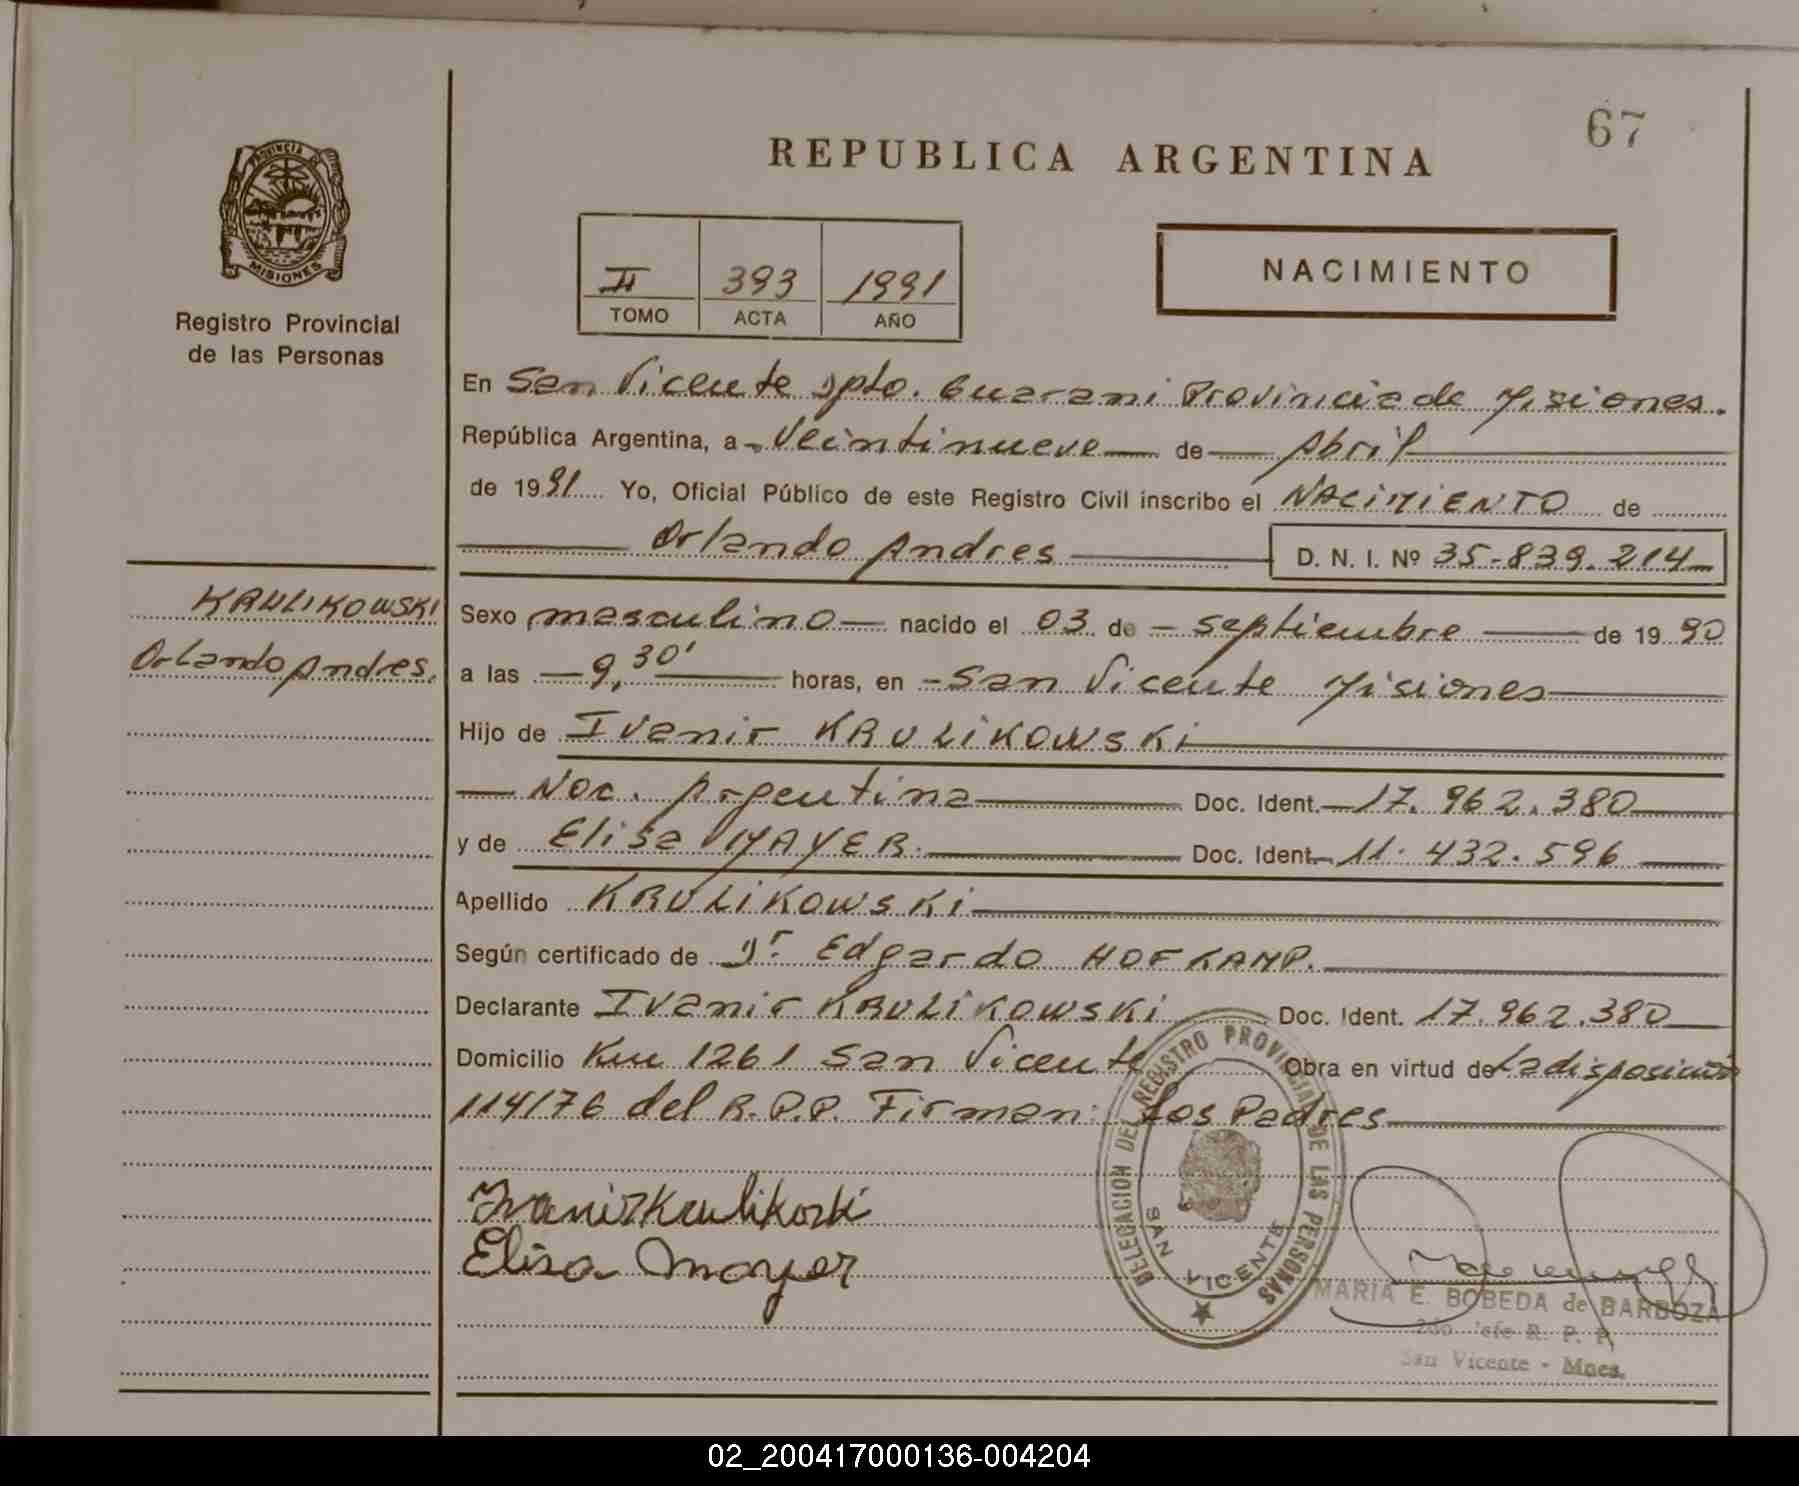 67
REPUBLICA ARGENTINA
PROVINCIA DE
MISIONES
Registro Provincial
de las Personas
II 393 1991
TOMO ACTA AÑO
NACIMIENTO
En San Vicente Dpto. Guarani Provincia de Misiones.
República Argentina, a Veintinueve de Abril
de 1991 Yo, Oficial Público de este Registro Civil inscribo el NACIMIENTO de
Orlando Andres D. N. I. Nº 35-839.214
KRULIKOWSKI
Orlando Andres.
Sexo masculino nacido el 03 de septiembre de 1990
a las 9,30' horas, en San Vicente Misiones
Hijo de Ivanir KRULIKOWSKI
Nac. Argentina Doc. Ident. 17.962.380
y de Elisa MAYER. Doc. Ident. 11.432.596
Apellido KRULIKOWSKI
Según certificado de Dr. Edgardo HOFKAMP.
Declarante Ivanir KRULIKOWSKI Doc. Ident. 17.962.380
Domicilio Km 1261 San Vicente Obra en virtud de La disposición
114/76 del R.P.P. Firman: Los Padres
DELEGACION DEL REGISTRO PROVINCIAL DE LAS PERSONAS
SAN VICENTE
Ivanir Krulikoski
Elisa Mayer
MARIA E. BOBEDA de BARBOZA
2do Jefe R. P. P.
San Vicente - Mnes.
02_200417000136-004204